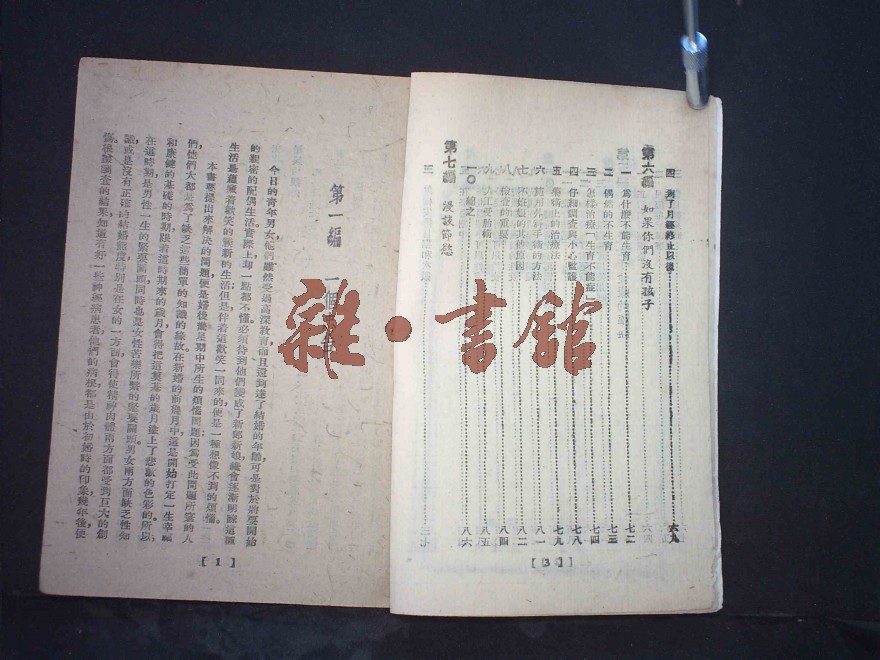 四 到了月經終止以後⋯⋯六九
第六編 如果你們沒有孩子
一 爲什麼不能生育⋯⋯七二
二 偶然的不生育⋯⋯七三
三 怎樣治療「生育不能症」⋯⋯七四
四 仔細調查與小心監護⋯⋯七八
五 藥物上的治療法⋯⋯七九
六 ⋯⋯八一
七 不妊娠的其他原因⋯⋯八二
八 檢查的重要⋯⋯八四
九 人工受胎補⋯⋯八五
一〇 總之⋯⋯八六
第七編 漫談節慾
【3】
第一編 一個
今日的青年男女,他們雖然受過高深教育,而且還到達了結婚的年齡,可是對於將要開始
的親密的配偶生活,實際上却一點都不懂,必須待到他們變成了新郎新娘,纔會逐漸明瞭這種
生活是蘊藏着歡笑的嶄新的生活;但是伴着這歡笑一同來的,便是一種想像不到的煩惱。
本書要提出來解決的問題,便是婚後蜜星期中所生的煩惱問題,因爲受此問題所窘的人
們,他們大都是爲了缺乏這些簡單的知識的緣故。在新婚的前幾月中,這是開始打定一生幸福
和康健的基礎的時期,跟着這時期來的歲月會得把這奠基的歲月塗上了悲歡的色彩的。所以
在這時期是男性一生的緊要關頭,同時也是女性苦樂所繫的緊要關頭,男女兩方面缺乏性知
識,或是沒有正確的結婚態度,特別是在女的一方面,會得使精神肉體兩方面都受到巨大的創
傷。根據調查的結果,知道有好一些神經病患者,他們的病根都是由於初婚時的印象,幾年後便
【1】
雜·書館